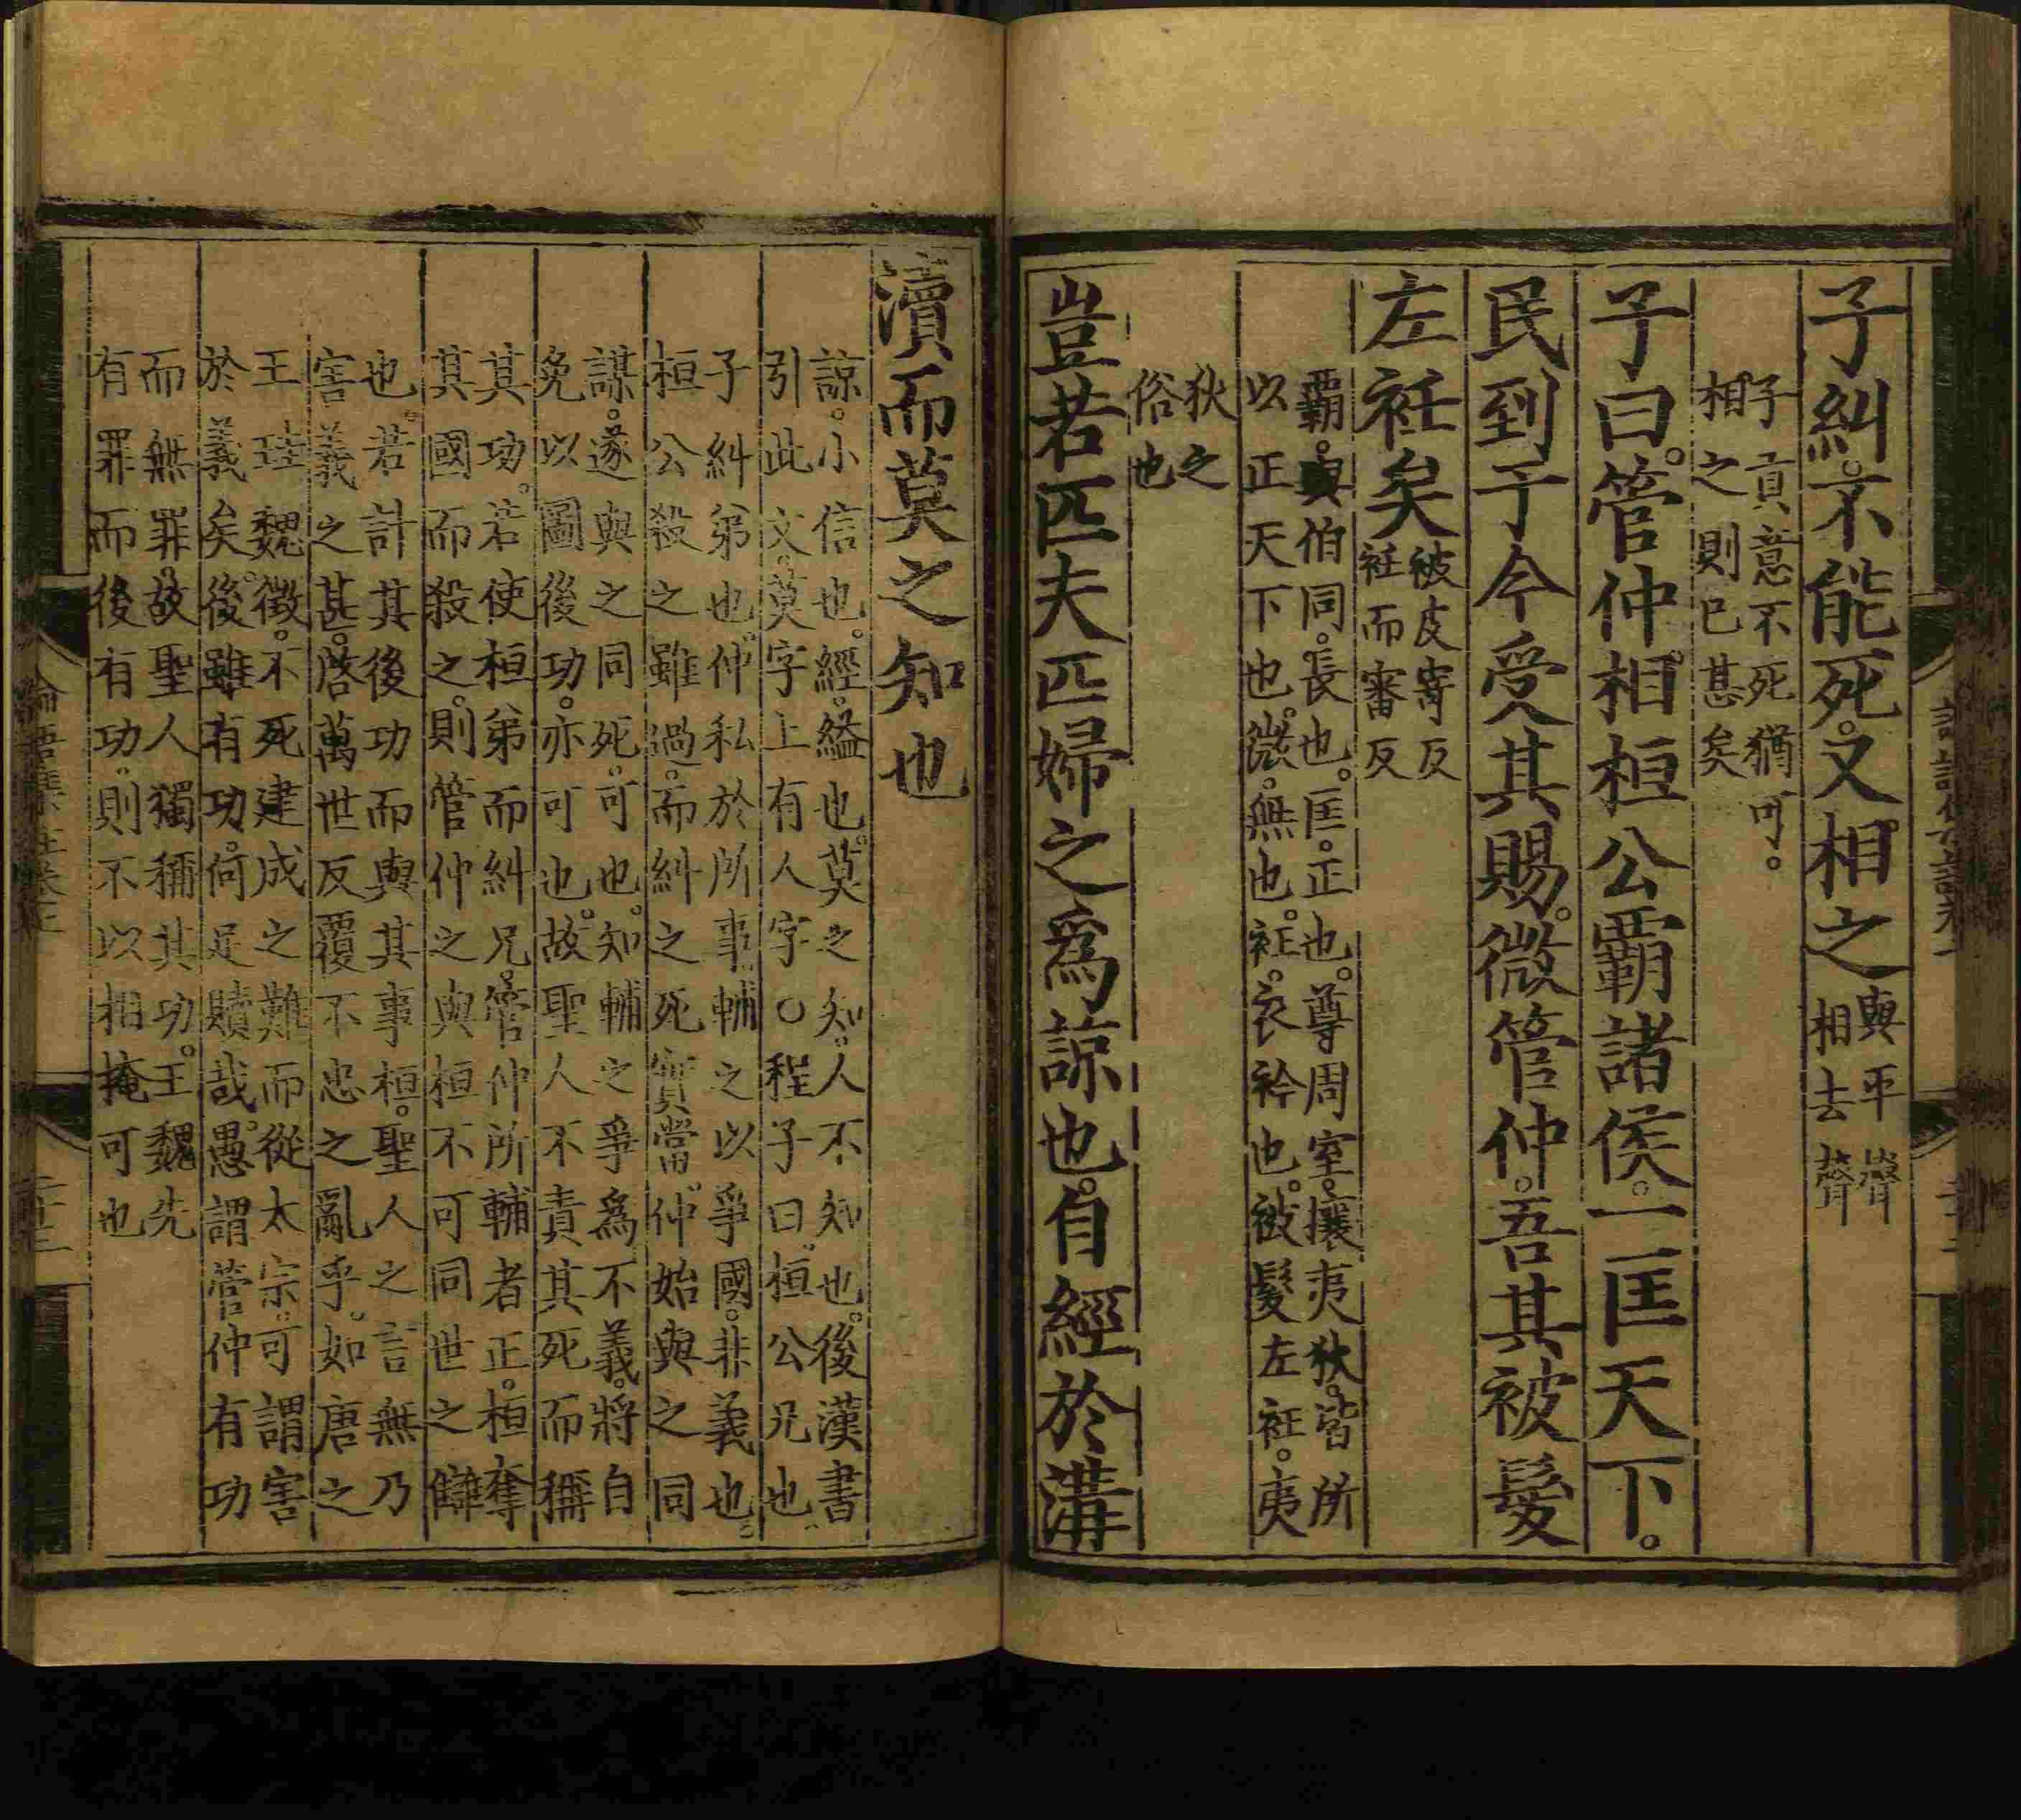 子糾不能死又相之與平聲
相去聲
子貢意不死猶可
相之則已甚矣
子曰管仲相桓公霸諸侯一匡天下
民到于今受其賜微管仲吾其被髮
左衽矣被皮寄反
衽而審反
霸與伯同長也匡正也尊周室攘夷狄皆所
以正天下也微無也衽衣衿也被髮左衽夷
狄之
俗也
豈若匹夫匹婦之爲諒也自經於溝
瀆而莫之知也
諒小信也經縊也莫之知人不知也後漢書
引此文莫字上有人字○程子曰桓公兄也
子糾弟也仲私於所事輔之以爭國非義也
桓公殺之雖過而糾之死實當仲始與之同
謀遂與之同死可也知輔之爭爲不義將自
免以圖後功亦可也故聖人不責其死而稱
其功若使桓弟而糾兄管仲所輔者正桓奪
其國而殺之則管仲之與桓不可同世之讎
也若計其後功而與其事桓聖人之言無乃
害義之甚啓萬世反覆不忠之亂乎如唐之
王珪魏徵不死建成之難而從太宗可謂害
於義矣後雖有功何足贖哉愚謂管仲有功
而無罪故聖人獨稱其功王魏先
有罪而後有功則不以相掩可也